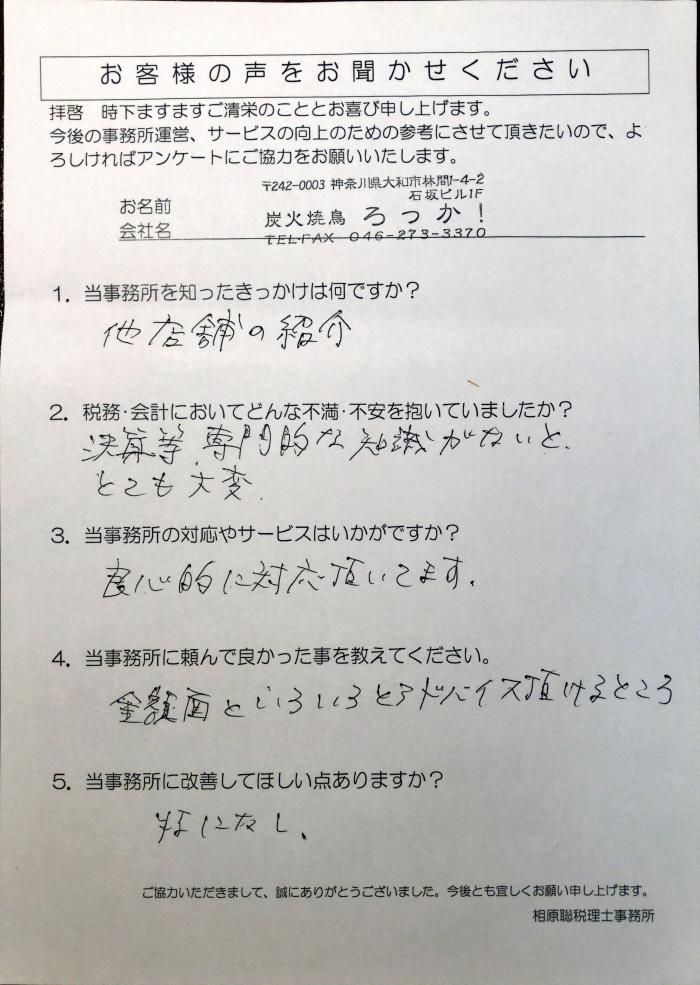 お客様の声をお聞かせください
拝啓　時下ますますご清栄のこととお喜び申し上げます。
今後の事務所運営、サービスの向上のための参考にさせて頂きたいので、よ
ろしければアンケートにご協力をお願いいたします。
〒242-0003 神奈川県大和市林間1-4-2
石坂ビル1F
お名前
炭火焼鳥 ろっか!
会社名
TEL・FAX 046-273-3370
1．当事務所を知ったきっかけは何ですか？
他店舗の紹介
2．税務・会計においてどんな不満・不安を抱いていましたか？
決算等、専門的な知識がないと、
とても大変.
3．当事務所の対応やサービスはいかがですか？
良心的に対応頂いてます.
4．当事務所に頼んで良かった事を教えてください。
金額面といろいろとアドバイス頂けるところ
5．当事務所に改善してほしい点ありますか？
特になし、
ご協力いただきまして、誠にありがとうございました。今後とも宜しくお願い申し上げます。
相原聡税理士事務所